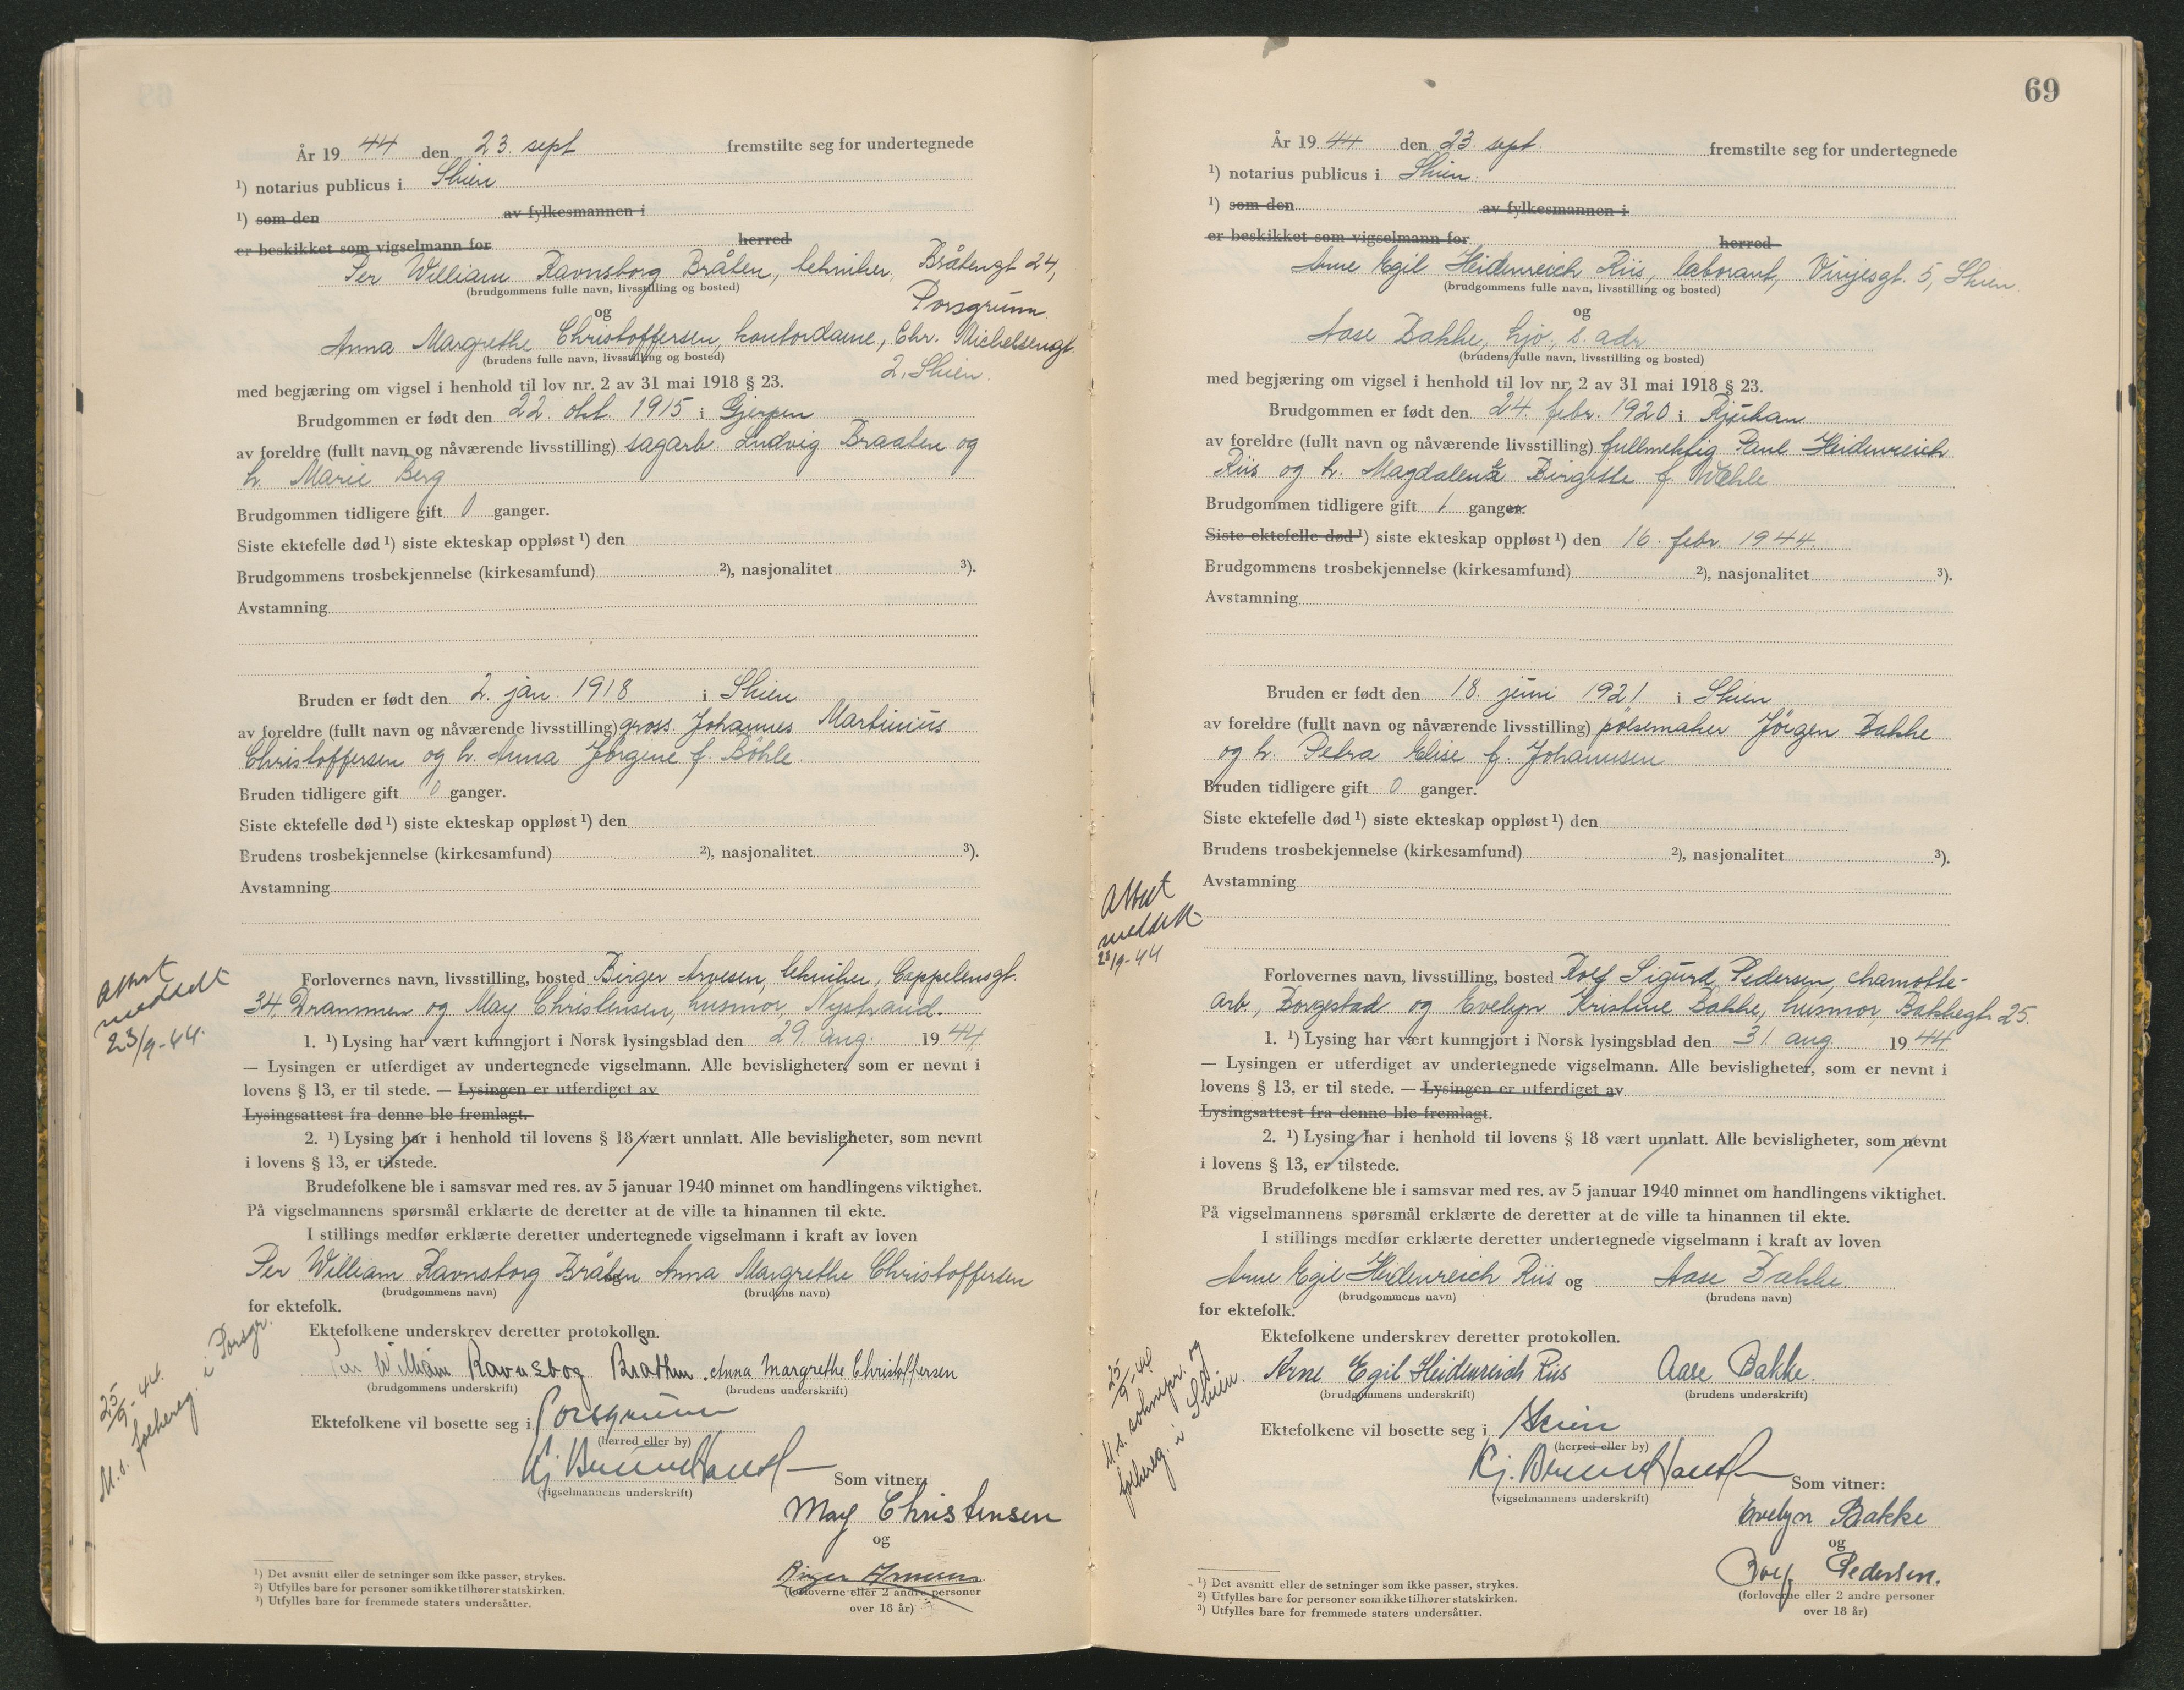 År 19 44 den 23. sept fremstilte seg for undertegnede
¹) notarius publicus i Skien
¹) som den av fylkesmannen i
er beskikket som vigselmann for herred
Per William Ravnsborg Bråten, tekniker, Bråtengt 24,
(brudgommens fulle navn, livsstilling og bosted)
Porsgrunn.
og
Anna Margrethe Christoffersen, kontordame, Chr. Michelsensgt.
(brudens fulle navn, livsstilling og bosted)
2, Skien.
med begjæring om vigsel i henhold til lov nr. 2 av 31 mai 1918 § 23.
Brudgommen er født den 22. okt. 1915 i Gjerpen
av foreldre (fullt navn og nåværende livsstilling) sagarb. Ludvig Braaten og
h. Marie Berg
Brudgommen tidligere gift 0 ganger.
Siste ektefelle død ¹) siste ekteskap oppløst ¹) den
Brudgommens trosbekjennelse (kirkesamfund) ²), nasjonalitet ³).
Avstamning
Bruden er født den 2. jan. 1918 i Skien
av foreldre (fullt navn og nåværende livsstilling) gross. Johannes Martinius
Christoffersen og h. Anna Jörgine f. Böhle.
Bruden tidligere gift 0 ganger.
Siste ektefelle død ¹) siste ekteskap oppløst ¹) den
Brudens trosbekjennelse (kirkesamfund) ²), nasjonalitet ³).
Avstamning
Attest
meddelt
23/9-44.
Forlovernes navn, livsstilling, bosted Birger Arvesen, tekniker, Cappelensgt.
34, Drammen og May Christensen, husmor, Nystrand.
1. ¹) Lysing har vært kunngjort i Norsk lysingsblad den 29. aug. 19 44
— Lysingen er utferdiget av undertegnede vigselmann. Alle bevisligheter, som er nevnt i
lovens § 13, er til stede. — Lysingen er utferdiget av
Lysingsattest fra denne ble fremlagt.
2. ¹) Lysing har i henhold til lovens § 18 vært unnlatt. Alle bevisligheter, som nevnt
i lovens § 13, er tilstede.
Brudefolkene ble i samsvar med res. av 5 januar 1940 minnet om handlingens viktighet.
På vigselmannens spørsmål erklærte de deretter at de ville ta hinannen til ekte.
I stillings medfør erklærte deretter undertegnede vigselmann i kraft av loven
Per William Ravnsborg Bråten og Anna Margrethe Christoffersen
(brudgommens navn) (brudens navn)
for ektefolk.
Ektefolkene underskrev deretter protokollen.
Per William Ravnsbog Braathen. Anna Margrethe Christoffersen
(brudgommens underskrift) (brudens underskrift)
25/9-44.
M.s. folkereg. i Porsgr.
Ektefolkene vil bosette seg i Porsgrunn
(herred eller by)
(vigselmannens underskrift)
Som vitner:
May Christensen
og
Birger Arvesen
(forloverne eller 2 andre personer
over 18 år)
¹) Det avsnitt eller de setninger som ikke passer, strykes.
²) Utfylles bare for personer som ikke tilhører statskirken.
³) Utfylles bare for fremmede staters undersåtter.
69
År 19 44 den 23. sept. fremstilte seg for undertegnede
¹) notarius publicus i Skien.
¹) som den av fylkesmannen i
er beskikket som vigselmann for herred
Arne Egil Heidenreich Riis, laborant, Vinjesgt. 5, Skien.
(brudgommens fulle navn, livsstilling og bosted)
og
Aase Bakke, hjv., s. adr.
(brudens fulle navn, livsstilling og bosted)
med begjæring om vigsel i henhold til lov nr. 2 av 31 mai 1918 § 23.
Brudgommen er født den 24. febr. 1920 i Rjukan
av foreldre (fullt navn og nåværende livsstilling) fullmektig Paul Heidenreich
Riis og h. Magdalene Birgitte f. Wæhle
Brudgommen tidligere gift 1 ganger.
Siste ektefelle død ¹) siste ekteskap oppløst ¹) den 16. febr. 1944.
Brudgommens trosbekjennelse (kirkesamfund) ²), nasjonalitet ³).
Avstamning
Bruden er født den 18. juni 1921 i Skien
av foreldre (fullt navn og nåværende livsstilling) pølsemaker Jörgen Bakke
og h. Petra Elise f. Johannsen
Bruden tidligere gift 0 ganger.
Siste ektefelle død ¹) siste ekteskap oppløst ¹) den
Brudens trosbekjennelse (kirkesamfund) ²), nasjonalitet ³).
Avstamning
Attest
meddelt
25/9-44
Forlovernes navn, livsstilling, bosted Rolf Sigurd Pedersen, chamotte-
arb., Borgestad og Evelyn Kristine Bakke, husmor, Bakkegt. 25.
1. ¹) Lysing har vært kunngjort i Norsk lysingsblad den 31. aug 19 44.
— Lysingen er utferdiget av undertegnede vigselmann. Alle bevisligheter, som er nevnt i
lovens § 13, er til stede. — Lysingen er utferdiget av
Lysingsattest fra denne ble fremlagt.
2. ¹) Lysing har i henhold til lovens § 18 vært unnlatt. Alle bevisligheter, som nevnt
i lovens § 13, er tilstede.
Brudefolkene ble i samsvar med res. av 5 januar 1940 minnet om handlingens viktighet.
På vigselmannens spørsmål erklærte de deretter at de ville ta hinannen til ekte.
I stillings medfør erklærte deretter undertegnede vigselmann i kraft av loven
Arne Egil Heidenreich Riis og Aase Bakke.
(brudgommens navn) (brudens navn)
for ektefolk.
Ektefolkene underskrev deretter protokollen.
Arne Egil Heidenreich Riis Aase Bakke.
(brudgommens underskrift) (brudens underskrift)
25/9-44
M.s. soknepr. og
folkereg. i Skien.
Ektefolkene vil bosette seg i Skien
(herred eller by)
(vigselmannens underskrift)
Som vitner:
Evelyn Bakke
og
Rolf Pedersen.
(forloverne eller 2 andre personer
over 18 år)
¹) Det avsnitt eller de setninger som ikke passer, strykes.
²) Utfylles bare for personer som ikke tilhører statskirken.
³) Utfylles bare for fremmede staters undersåtter.